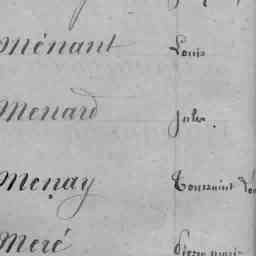 Ménant Louis
Menard Jules.
Menay Toussaint
Meré Pierre marie